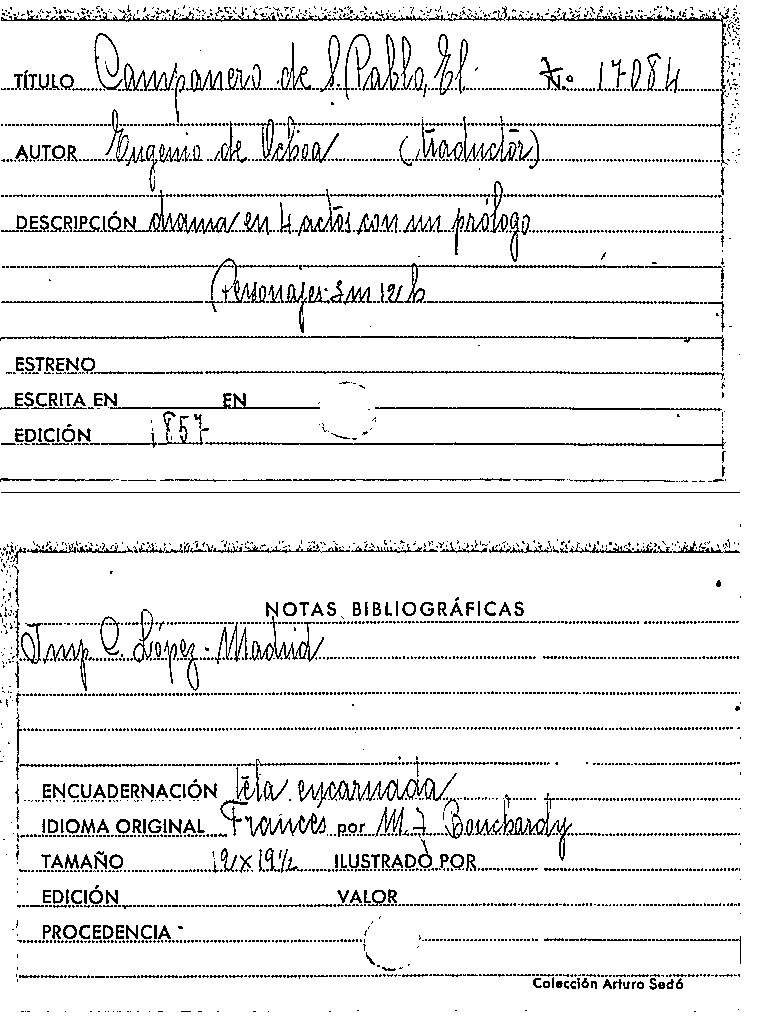 TÍTULO Campanero de S. Pablo, El N.º 17084
AUTOR Eugenio de Ochoa (traductor)
DESCRIPCIÓN drama en 4 actos con un prólogo
Personajes 3 m 12 h
ESTRENO
ESCRITA EN EN
EDICIÓN 1857
NOTAS BIBLIOGRÁFICAS
Imp. C. López - Madrid
ENCUADERNACIÓN tela encarnada
IDIOMA ORIGINAL Francés por M. J Bouchardy
TAMAÑO 12 x 19 1/2 ILUSTRADO POR
EDICIÓN VALOR
PROCEDENCIA
Colección Arturo Sedó